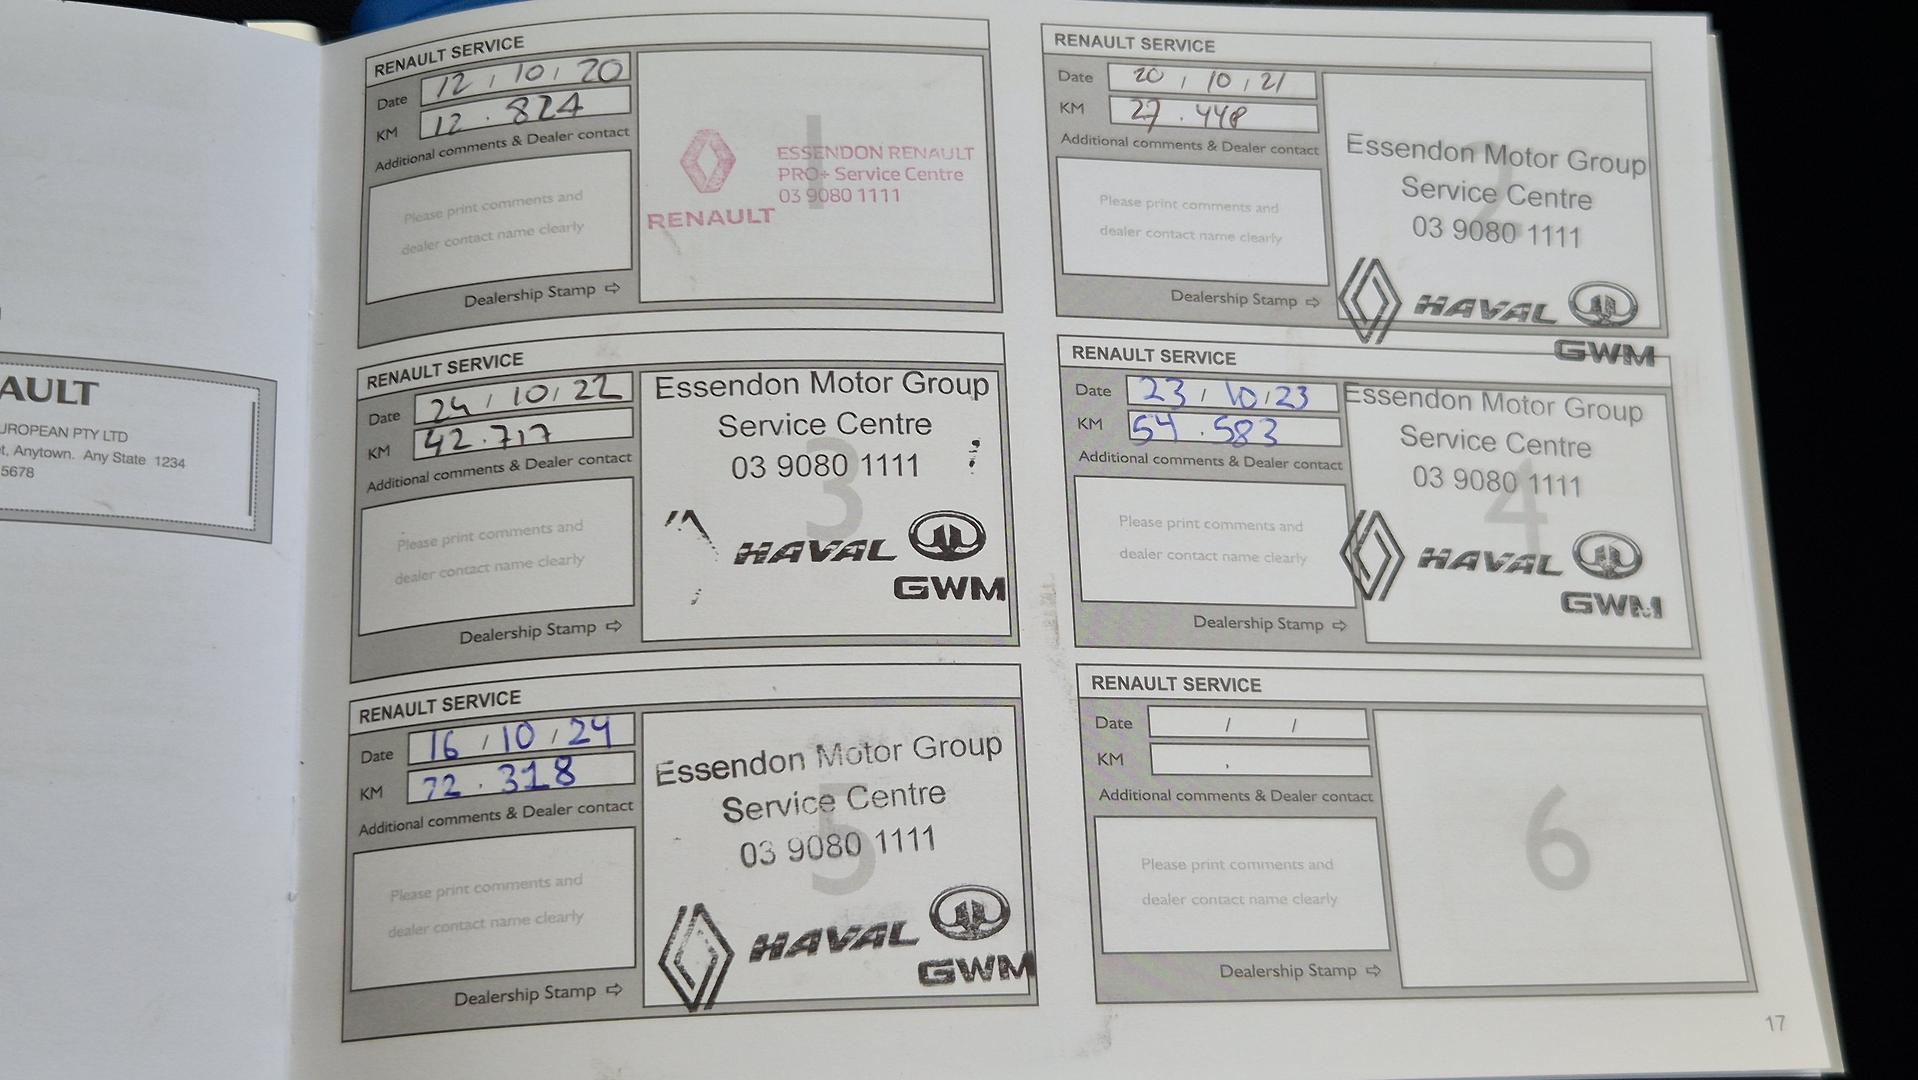 AULT
UROPEAN PTY LTD
t, Anytown. Any State 1234
5678
RENAULT SERVICE
Date 12 / 10 / 20
KM 12 . 824
Additional comments & Dealer contact
Please print comments and
dealer contact name clearly
Dealership Stamp ⇨
1
ESSENDON RENAULT
PRO+ Service Centre
03 9080 1111
RENAULT
RENAULT SERVICE
Date 20 / 10 / 21
KM 27 . 448
Additional comments & Dealer contact
Please print comments and
dealer contact name clearly
Dealership Stamp ⇨
2
Essendon Motor Group
Service Centre
03 9080 1111
HAVAL
GWM
RENAULT SERVICE
Date 24 / 10 / 22
KM 42 . 717
Additional comments & Dealer contact
Please print comments and
dealer contact name clearly
Dealership Stamp ⇨
3
Essendon Motor Group
Service Centre
03 9080 1111
HAVAL
GWM
RENAULT SERVICE
Date 23 / 10 / 23
KM 54 . 583
Additional comments & Dealer contact
Please print comments and
dealer contact name clearly
Dealership Stamp ⇨
4
Essendon Motor Group
Service Centre
03 9080 1111
HAVAL
GWM
RENAULT SERVICE
Date 16 / 10 / 24
KM 72 . 318
Additional comments & Dealer contact
Please print comments and
dealer contact name clearly
Dealership Stamp ⇨
5
Essendon Motor Group
Service Centre
03 9080 1111
HAVAL
GWM
RENAULT SERVICE
Date / /
KM .
Additional comments & Dealer contact
Please print comments and
dealer contact name clearly
Dealership Stamp ⇨
6
17